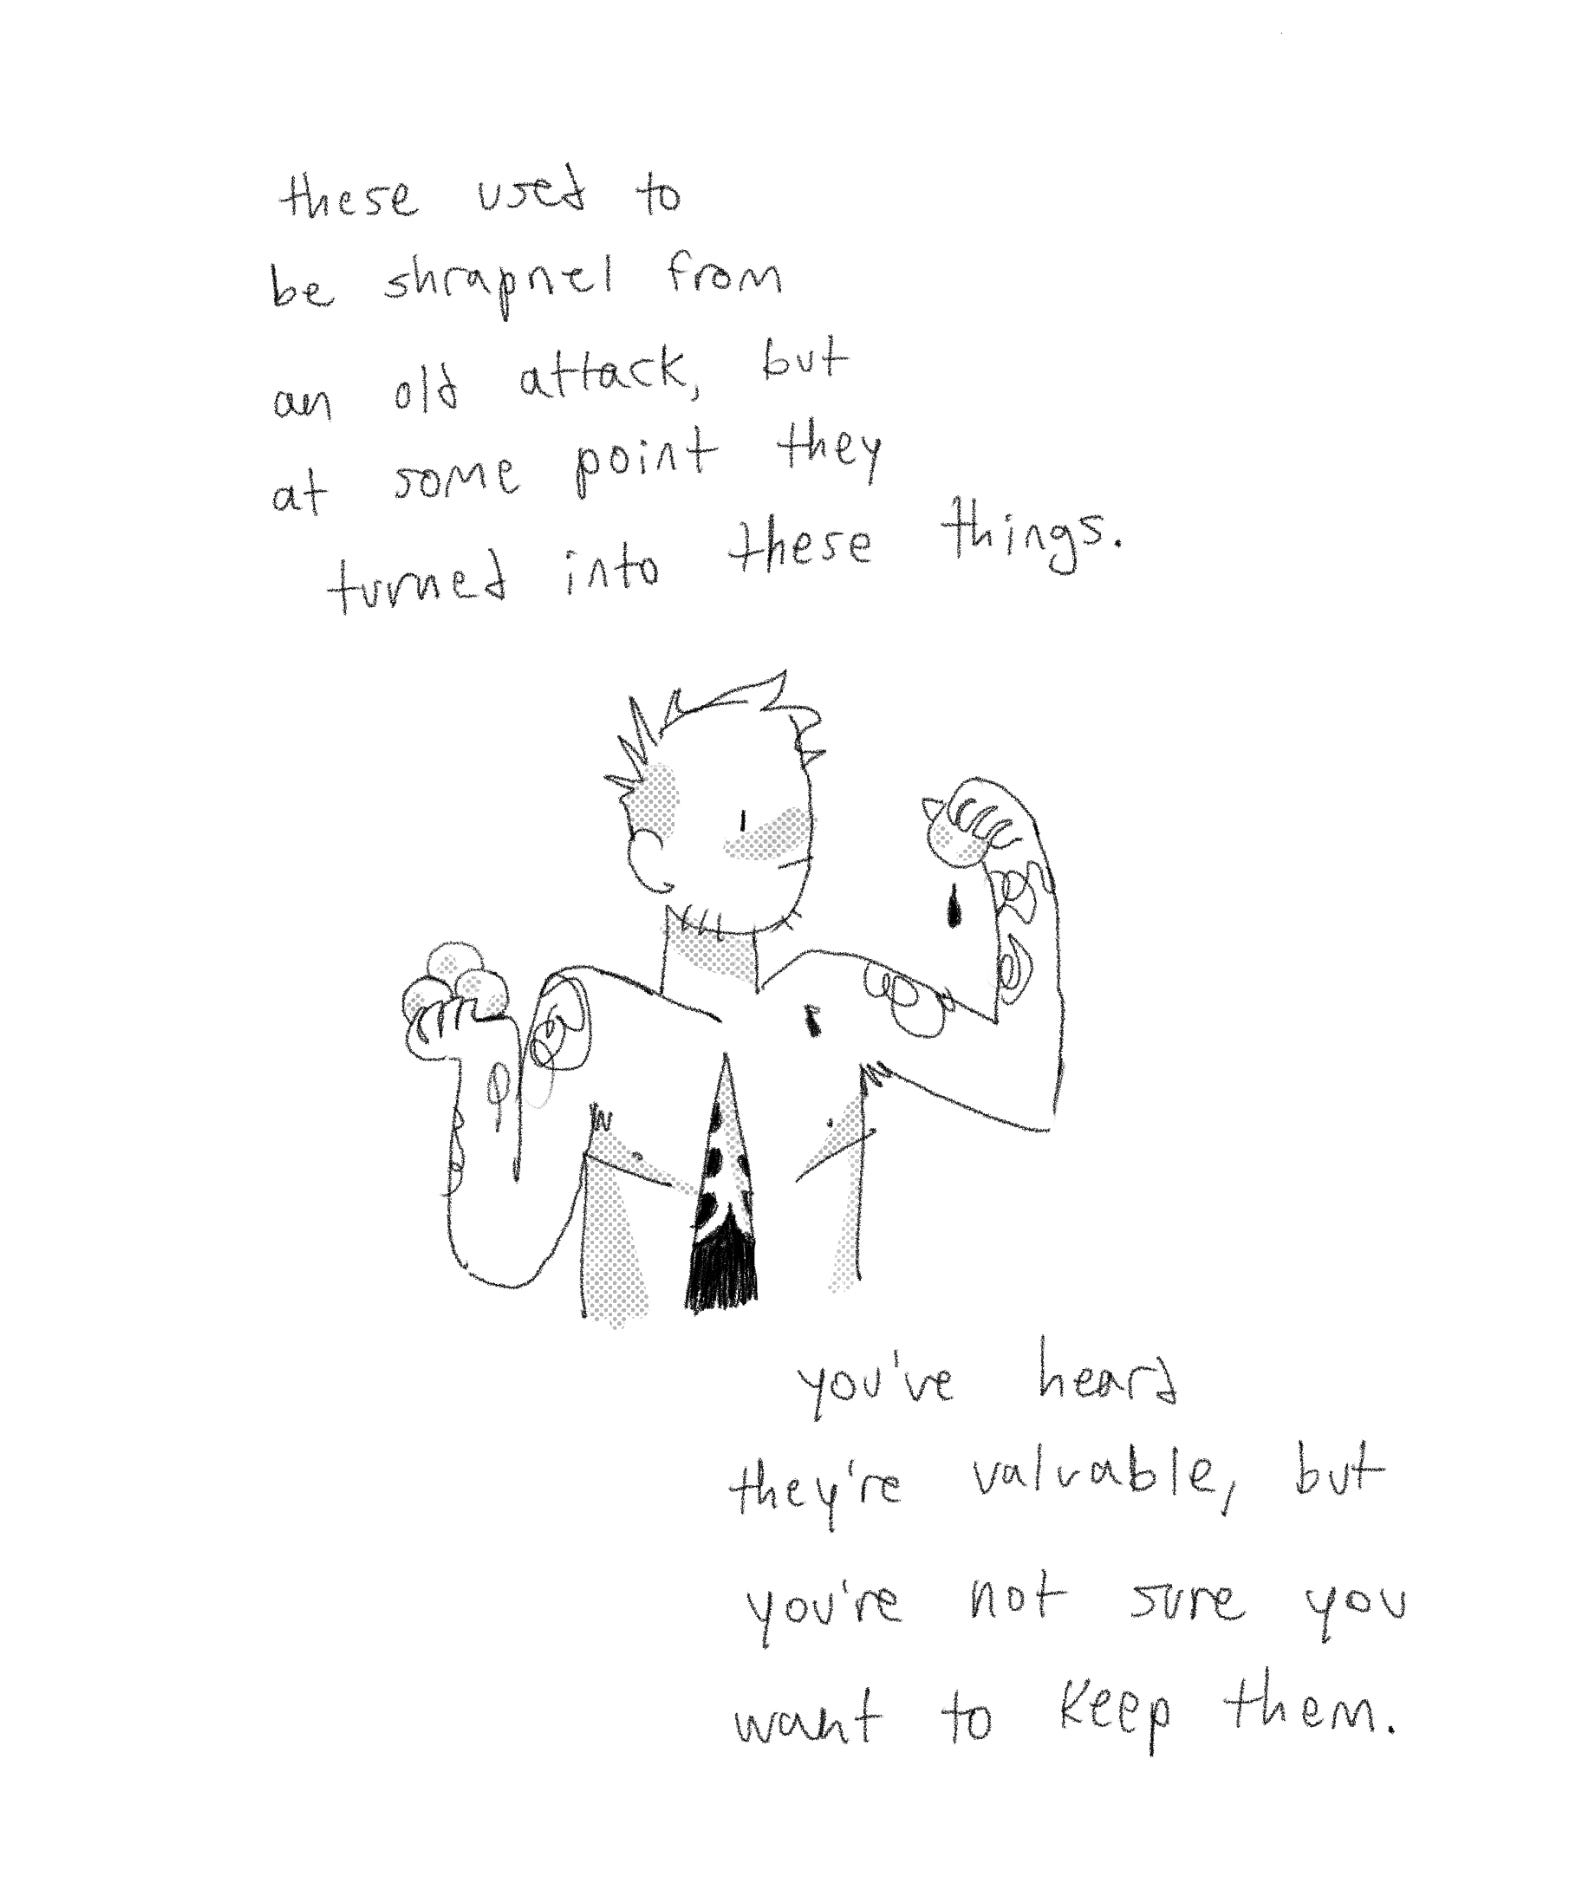 these used to
be shrapnel from
an old attack, but
at some point they
turned into these things.
you've heard
they're valuable, but
you're not sure you
want to keep them.